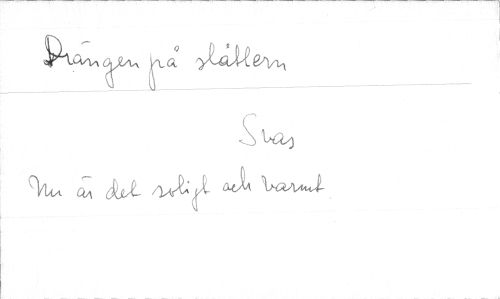 Drängen på slåttern
Svas
Nu är det soligt och varmt